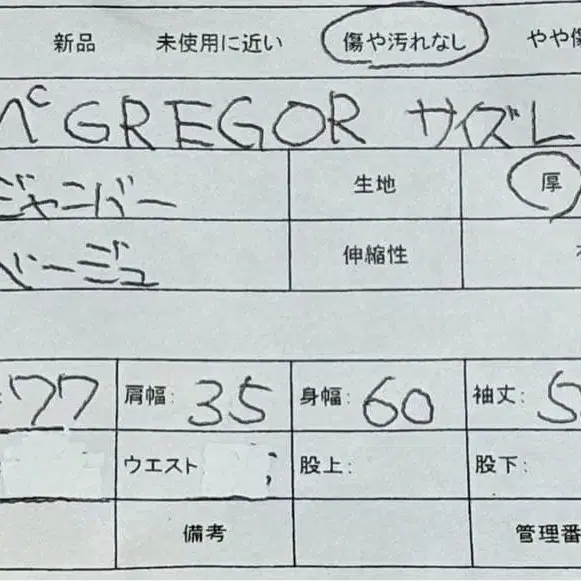 新品 未使用に近い 傷や汚れなし やや傷
McGREGOR サイズL
ジャンバー 生地 厚
ベージュ 伸縮性
77 肩幅: 35 身幅: 60 袖丈: 5
ウエスト 股上: 股下:
備考 管理番